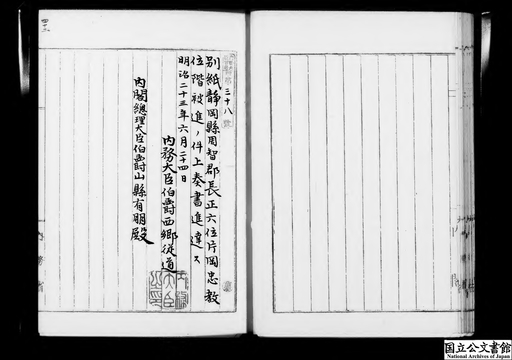 三十八
別紙静岡縣周智郡長正六位片岡忠教
位階被進ノ件上奏書進達ス
明治二十三年六月二十四日
内務大臣伯爵西郷従道
内閣總理大臣伯爵山縣有朋殿
国立公文書館
National Archives of Japan